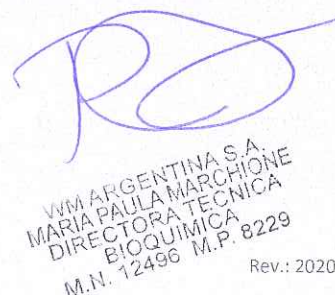 WM ARGENTINA S.A.
MARIA PAULA MARCHIONE
DIRECTORA TECNICA
BIOQUIMICA
M.N. 12496 M.P. 8229
Rev.: 2020